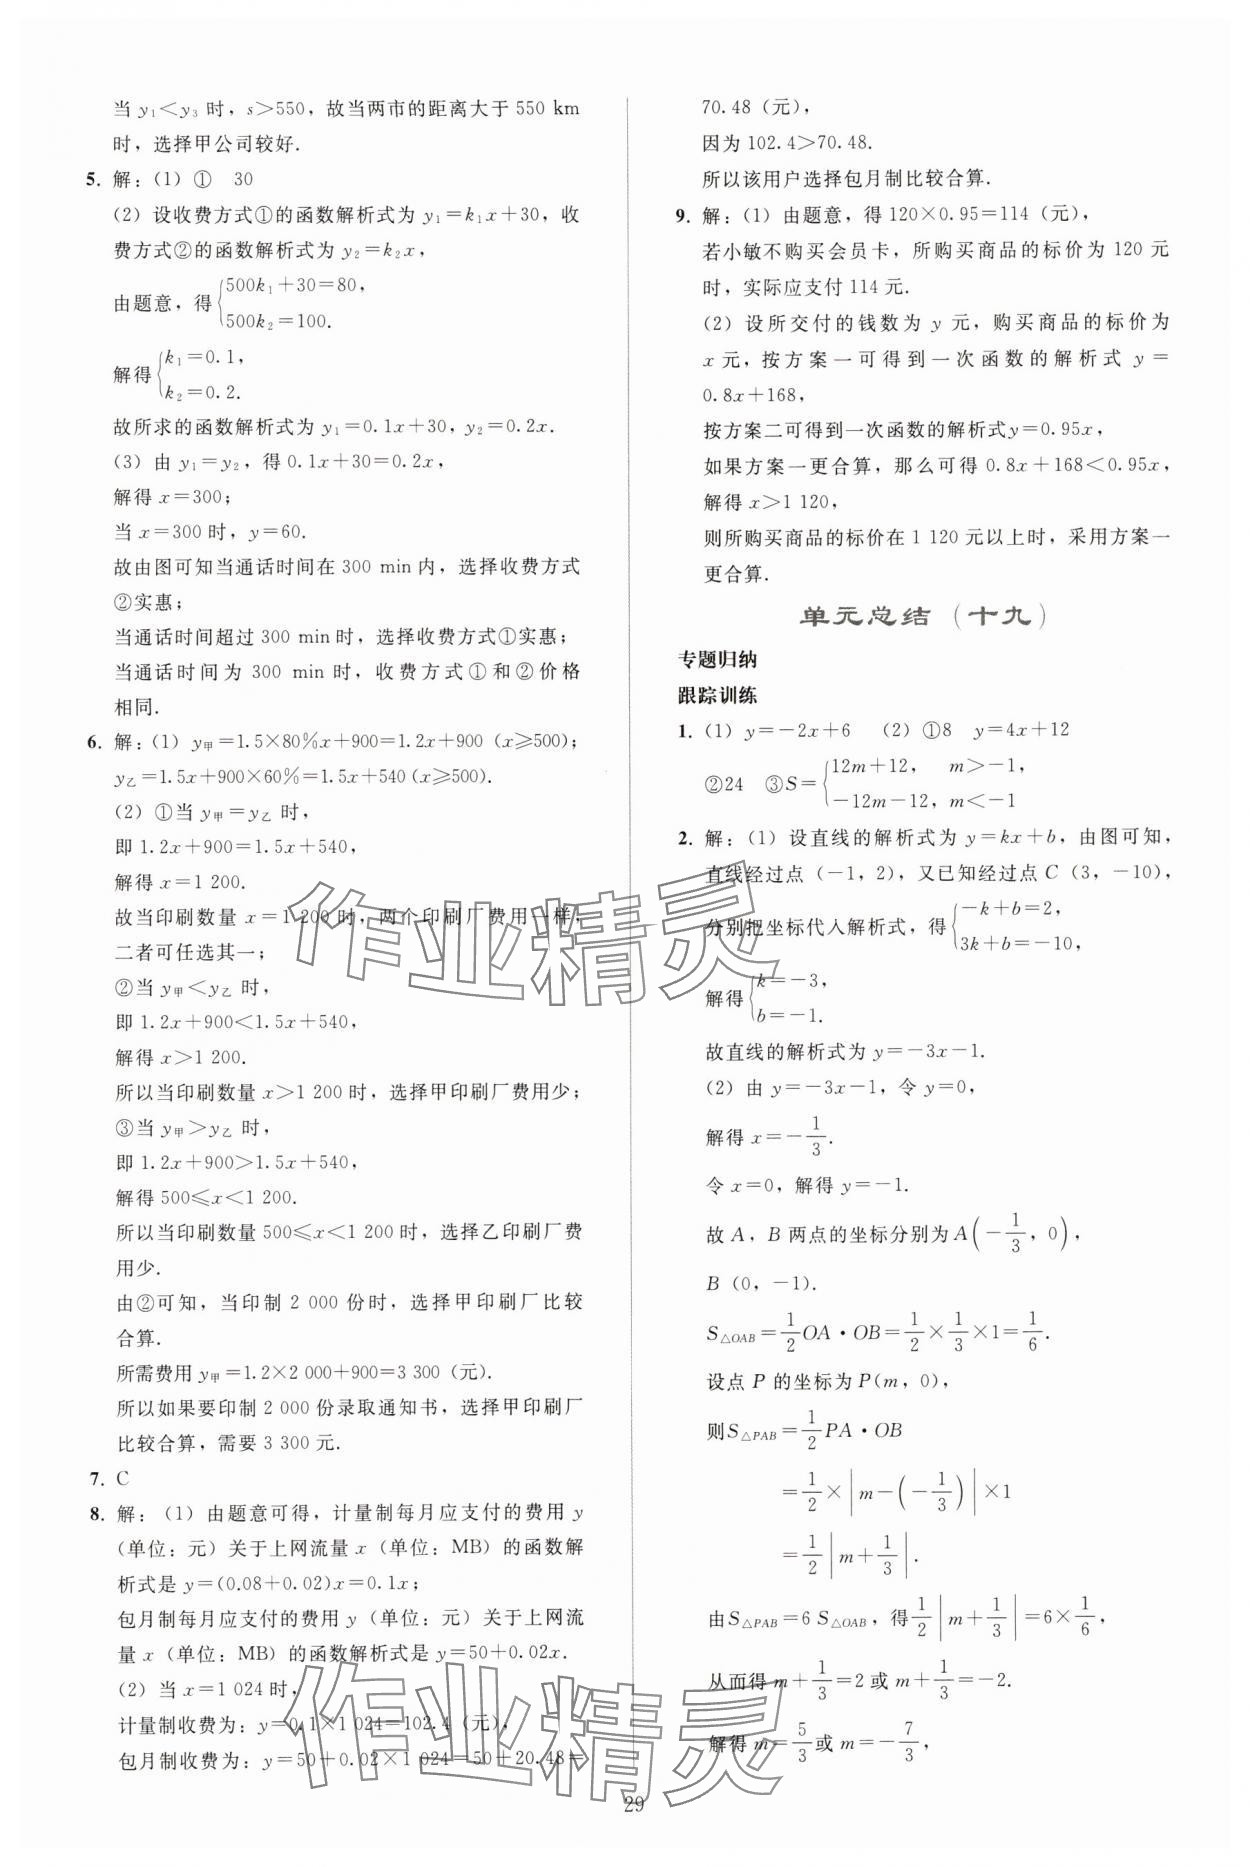 当 y₁＜y₃ 时，s＞550，故当两市的距离大于 550 km
时，选择甲公司较好.
5. 解：(1) ① 30
(2) 设收费方式①的函数解析式为 y₁=k₁x+30，收
费方式②的函数解析式为 y₂=k₂x，
由题意，得{500k₁+30=80，
500k₂=100.
解得{k₁=0.1，
k₂=0.2.
故所求的函数解析式为 y₁=0.1x+30，y₂=0.2x.
(3) 由 y₁=y₂，得 0.1x+30=0.2x，
解得 x=300；
当 x=300 时，y=60.
故由图可知当通话时间在 300 min 内，选择收费方式
②实惠；
当通话时间超过 300 min 时，选择收费方式①实惠；
当通话时间为 300 min 时，收费方式①和②价格
相同.
6. 解：(1) y甲=1.5×80%x+900=1.2x+900 (x≥500)；
y乙=1.5x+900×60%=1.5x+540 (x≥500).
(2) ①当 y甲=y乙 时，
即 1.2x+900=1.5x+540，
解得 x=1 200.
故当印刷数量 x=1 200 时，两个印刷厂费用一样，
二者可任选其一；
②当 y甲＜y乙 时，
即 1.2x+900＜1.5x+540，
解得 x＞1 200.
所以当印刷数量 x＞1 200 时，选择甲印刷厂费用少；
③当 y甲＞y乙 时，
即 1.2x+900＞1.5x+540，
解得 500≤x＜1 200.
所以当印刷数量 500≤x＜1 200 时，选择乙印刷厂费
用少.
由②可知，当印制 2 000 份时，选择甲印刷厂比较
合算.
所需费用 y甲=1.2×2 000+900=3 300 (元).
所以如果要印制 2 000 份录取通知书，选择甲印刷厂
比较合算，需要 3 300 元.
7. C
8. 解：(1) 由题意可得，计量制每月应支付的费用 y
(单位：元) 关于上网流量 x (单位：MB) 的函数解
析式是 y=(0.08+0.02)x=0.1x；
包月制每月应支付的费用 y (单位：元) 关于上网流
量 x (单位：MB) 的函数解析式是 y=50+0.02x.
(2) 当 x=1 024 时，
计量制收费为：y=0.1×1 024=102.4 (元)，
包月制收费为：y=50+0.02×1 024=50+20.48=
70.48 (元)，
因为 102.4＞70.48.
所以该用户选择包月制比较合算.
9. 解：(1) 由题意，得 120×0.95=114 (元)，
若小敏不购买会员卡，所购买商品的标价为 120 元
时，实际应支付 114 元.
(2) 设所交付的钱数为 y 元，购买商品的标价为
x 元，按方案一可得到一次函数的解析式 y=
0.8x+168，
按方案二可得到一次函数的解析式 y=0.95x，
如果方案一更合算，那么可得 0.8x+168＜0.95x，
解得 x＞1 120，
则所购买商品的标价在 1 120 元以上时，采用方案一
更合算.
单元总结（十九）
专题归纳
跟踪训练
1. (1) y=-2x+6 (2) ①8 y=4x+12
②24 ③S={12m+12， m＞-1，
-12m-12，m＜-1
2. 解：(1) 设直线的解析式为 y=kx+b，由图可知，
直线经过点 (-1，2)，又已知经过点 C (3，-10)，
分别把坐标代人解析式，得{-k+b=2，
3k+b=-10，
解得{k=-3，
b=-1.
故直线的解析式为 y=-3x-1.
(2) 由 y=-3x-1，令 y=0，
解得 x=-1/3.
令 x=0，解得 y=-1.
故 A，B 两点的坐标分别为 A(-1/3，0)，
B (0，-1).
S△OAB=1/2 OA·OB=1/2×1/3×1=1/6.
设点 P 的坐标为 P(m，0)，
则 S△PAB=1/2 PA·OB
=1/2×|m-(-1/3)|×1
=1/2|m+1/3|.
由 S△PAB=6 S△OAB，得 1/2|m+1/3|=6×1/6，
从而得 m+1/3=2 或 m+1/3=-2.
解得 m=5/3 或 m=-7/3，
29
作业精灵
作业精灵